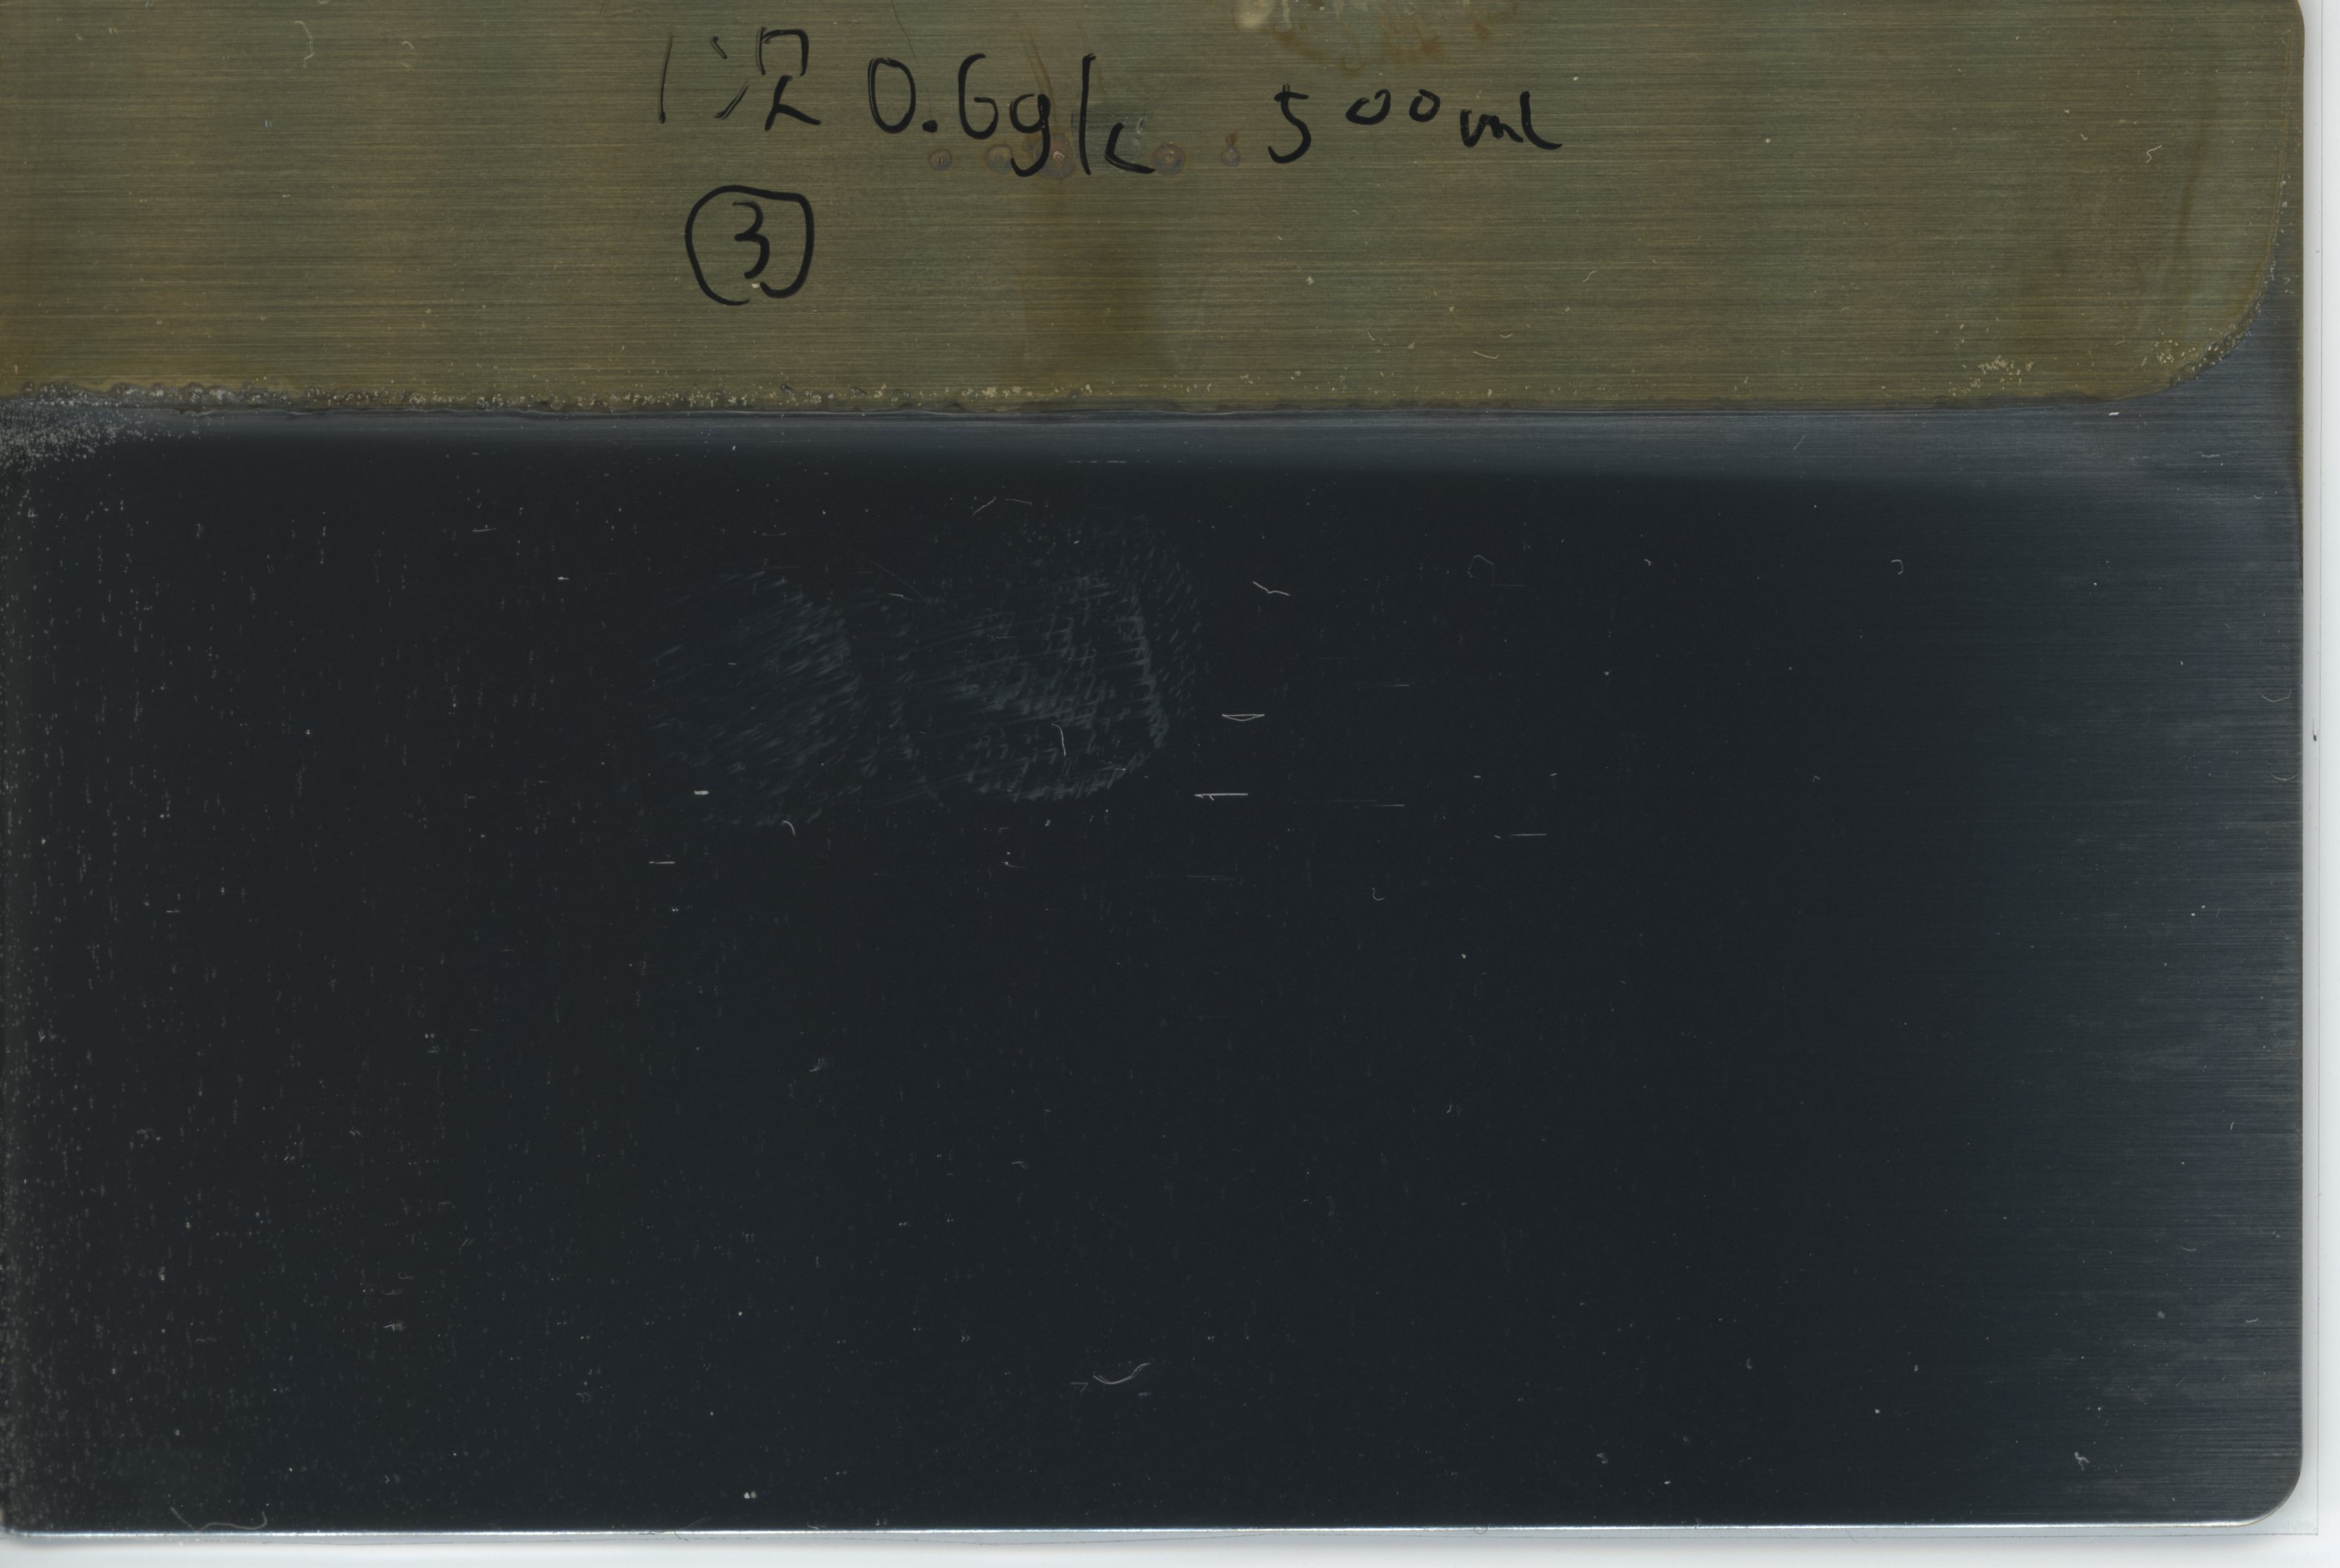 1 0.6g/L 500ml
③